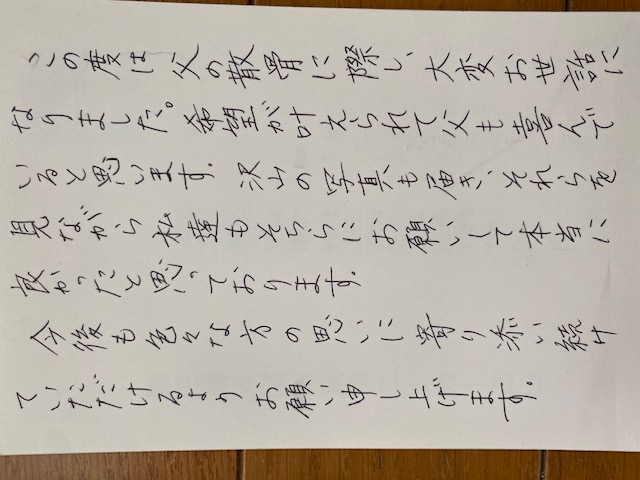 この度は父の散骨に際し、大変お世話に
なりました。希望が叶えられて父も喜んで
いると思います。沢山の写真も届き、それらを
見ながら私達もそちらにお願いして本当に
良かったと思っております。
今後も色々な方の思いに寄り添い続け
ていただけるよりお願い申し上げます。